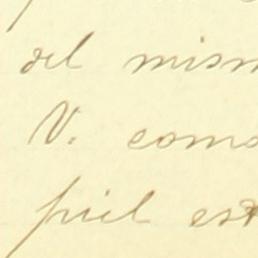 del mism
V. como
piel est